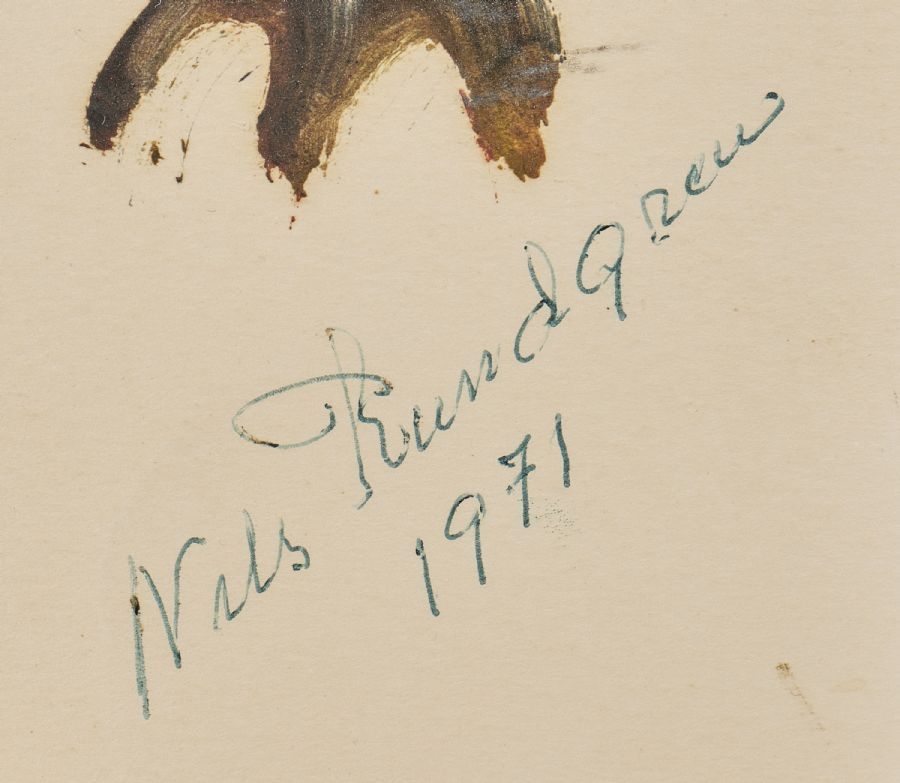 Nils Rundgren
1971